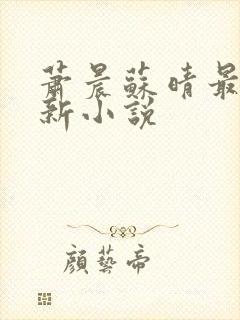 蕭晨蘇晴最
新小說
顏藝帝